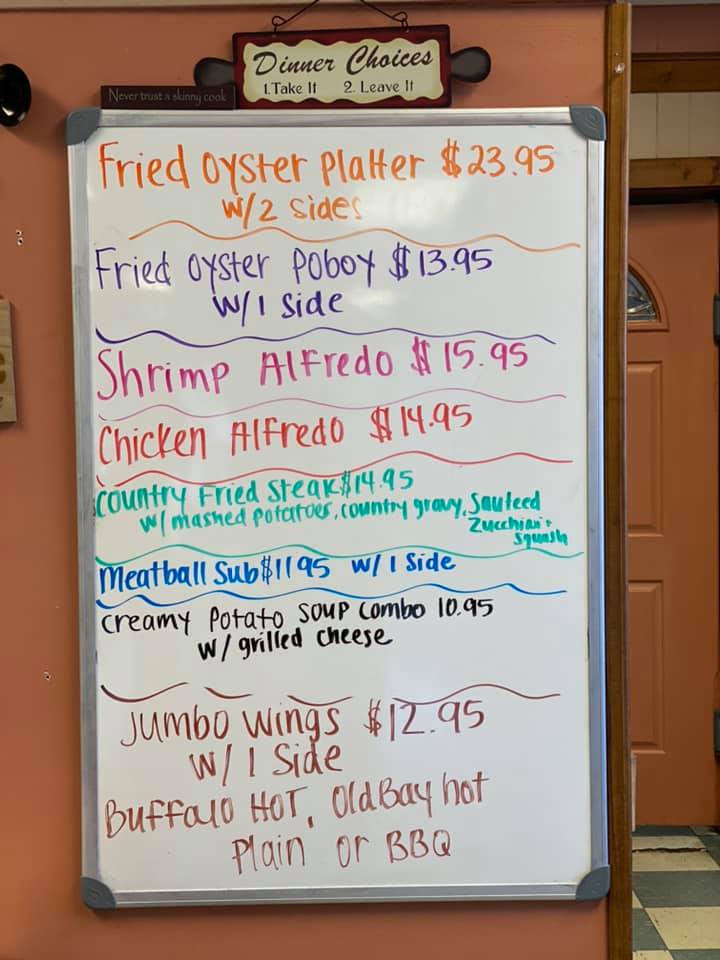 Dinner Choices
1. Take It 2. Leave It
Never trust a skinny cook
Fried oyster Platter $23.95
w/2 sides
Fried oyster Poboy $13.95
w/1 side
Shrimp Alfredo $15.95
Chicken Alfredo $14.95
Country Fried Steak $14.95
w/ mashed potatoes, country gravy, Sauteed
Zucchini +
Squash
Meatball Sub $11.95 w/ 1 Side
creamy Potato Soup Combo 10.95
w/ grilled cheese
Jumbo Wings $12.95
w/ 1 Side
Buffalo HOT, Old Bay hot
Plain or BBQ